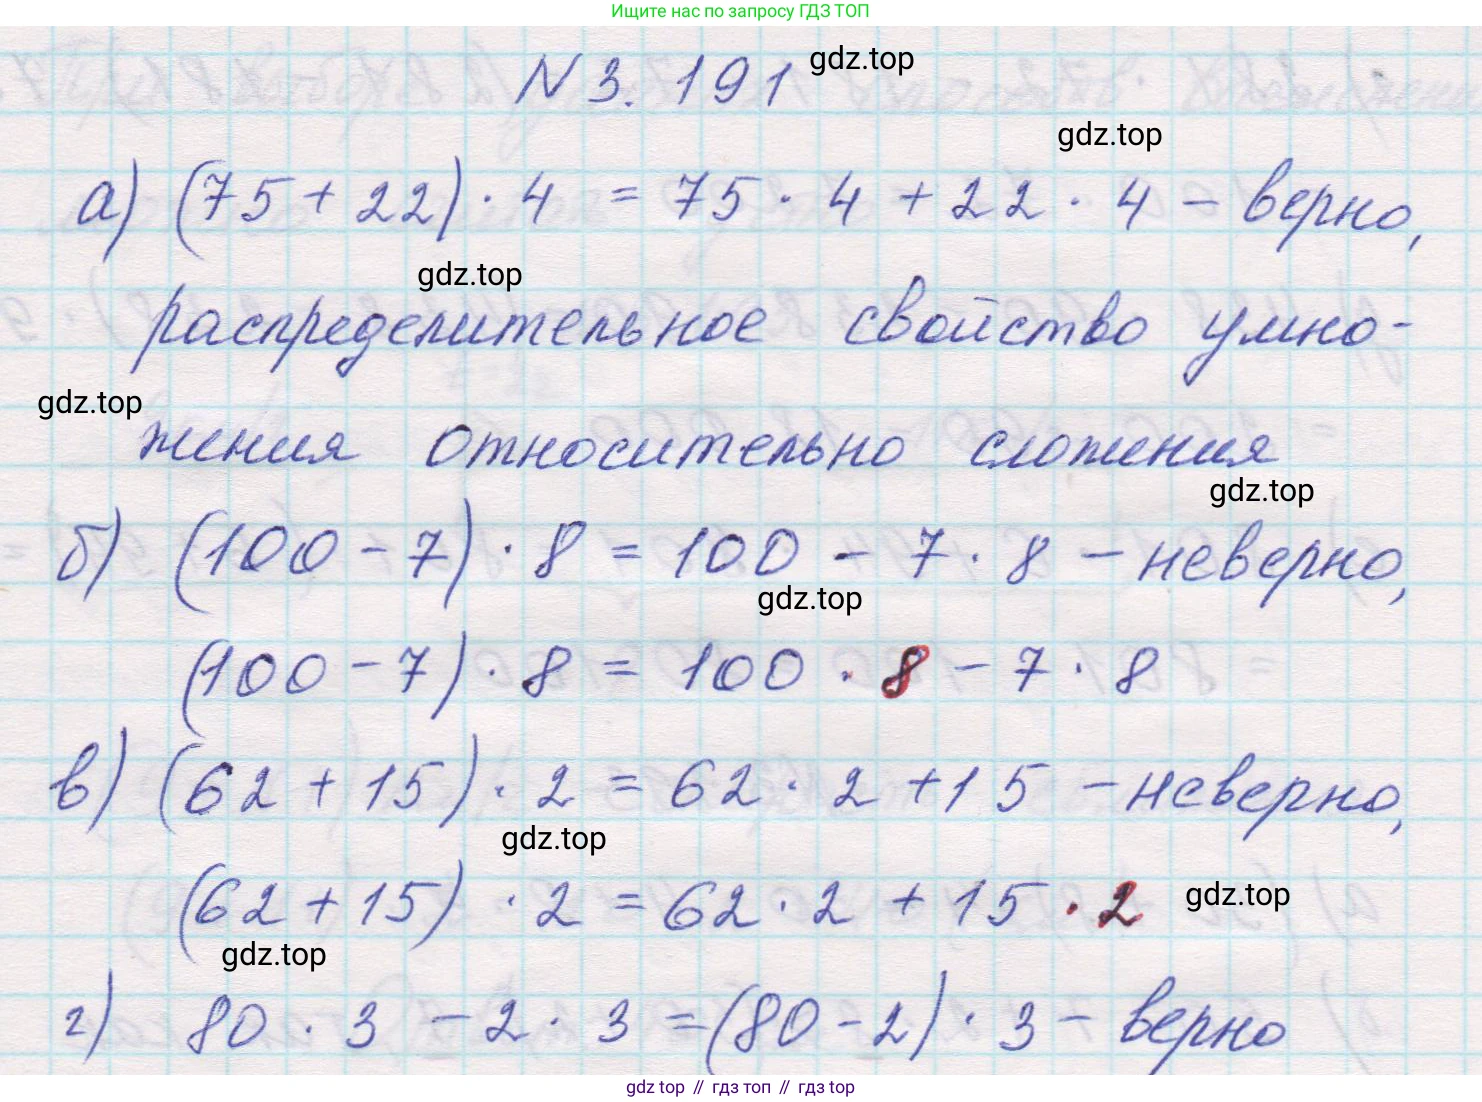 Ищите нас по запросу ГДЗ ТОП
N 3.191 gdz.top
gdz.top
а) (75 + 22) · 4 = 75 · 4 + 22 · 4 – верно,
gdz.top
распределительное свойство умно-
gdz.top
жения относительно сложения
gdz.top
б) (100 – 7) · 8 = 100 – 7 · 8 – неверно,
gdz.top
(100 – 7) · 8 = 100 · 8 – 7 · 8
в) (62 + 15) · 2 = 62 · 2 + 15 – неверно,
gdz.top
(62 + 15) · 2 = 62 · 2 + 15 · 2 gdz.top
gdz.top
г) 80 · 3 – 2 · 3 = (80 – 2) · 3 – верно
gdz top // гдз топ // гдз top